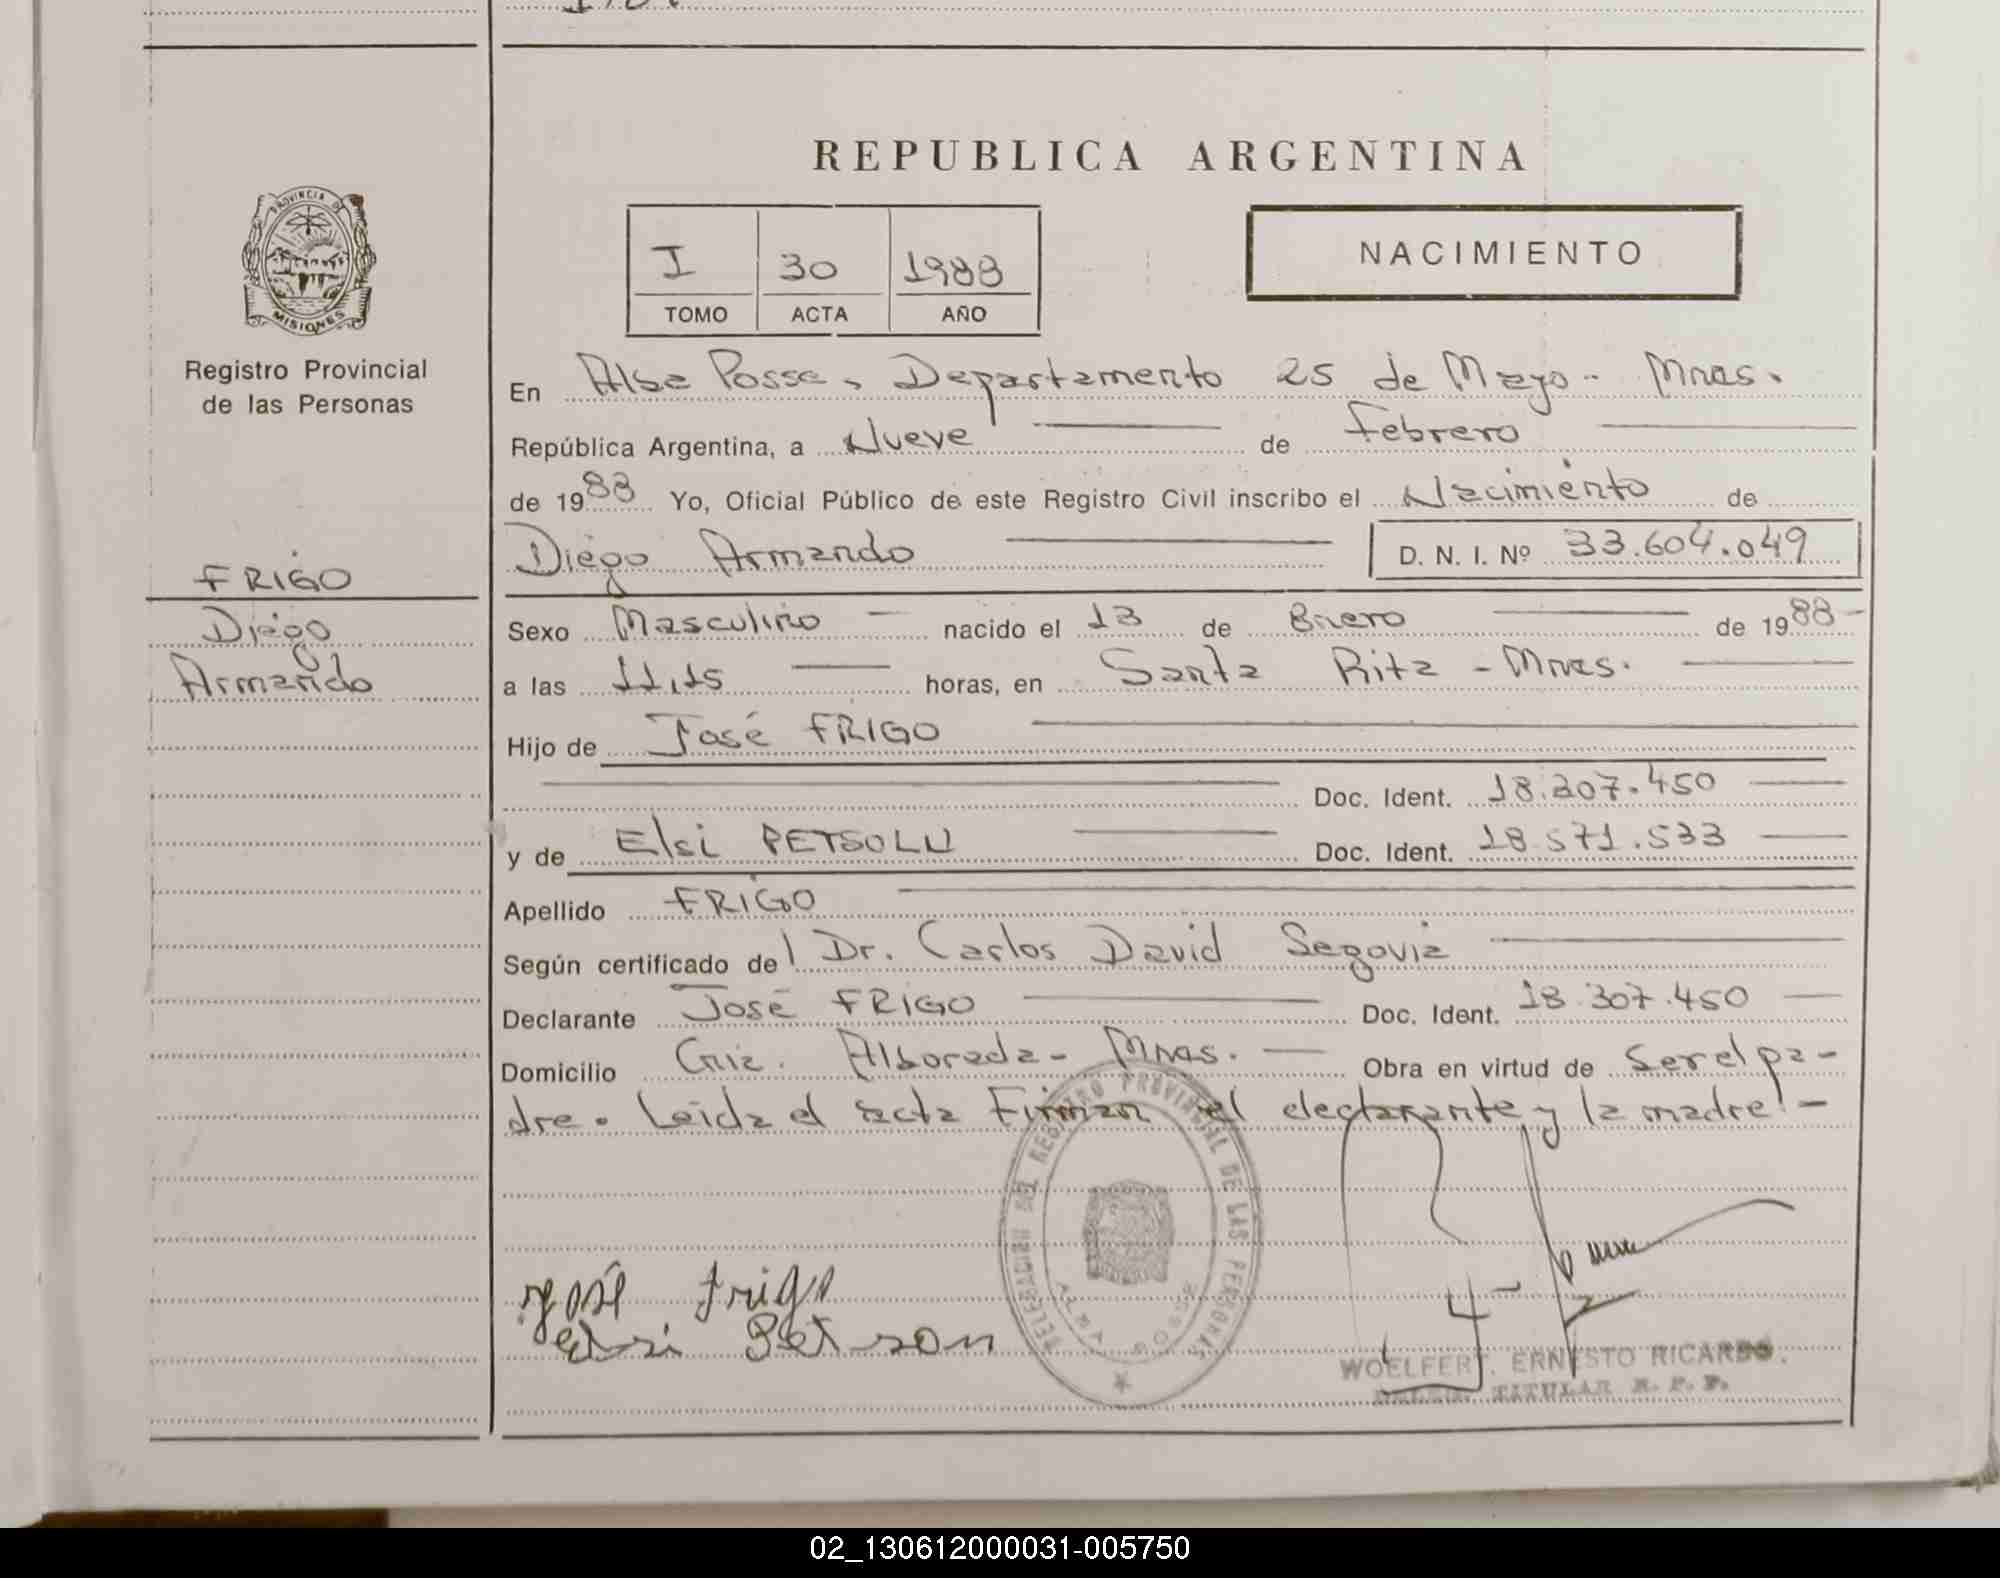 REPUBLICA ARGENTINA
PROVINCIA D
MISIONES
Registro Provincial
de las Personas
NACIMIENTO
I 30 1988
TOMO ACTA AÑO
En Alba Posse, Departamento 25 de Mayo - Mnes.
República Argentina, a Nueve de Febrero
de 1988 Yo, Oficial Público de este Registro Civil inscribo el Nacimiento de
Diego Armando D. N. I. Nº 33.604.049
FRIGO
Diego
Armando
Sexo Masculino nacido el 13 de Enero de 1988
a las 11,15 horas, en Santa Rita - Mnes.
Hijo de José FRIGO
Doc. Ident. 18.207.450
y de Elsi Doc. Ident. 18.571.533
Apellido FRIGO
Según certificado del Dr. Carlos David Segovia
Declarante José FRIGO Doc. Ident. 18.307.450
Domicilio Alborada - Mnes. Obra en virtud de Ser el pa-
dre. Leida el acta Firman el declarante y la madre. -
DELEGACION DEL REGISTRO PROVINCIAL DE LAS PERSONAS
ALBA POSSE
José Frigo
Elsi
WOELFERT, ERNESTO RICARDO.
TITULAR R. P. P.
02_130612000031-005750